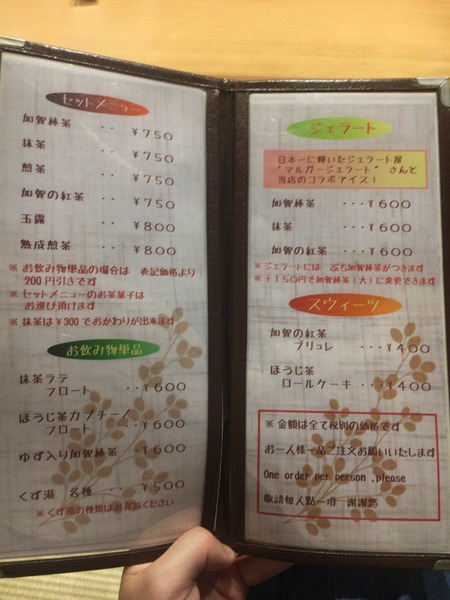 セットメニュー
加賀棒茶 ・・ ¥750
抹茶 ・・ ¥750
煎茶 ・・ ¥750
加賀の紅茶 ・・ ¥750
玉露 ・・ ¥800
熟成煎茶 ・・ ¥800
※ お飲み物単品の場合は 表記価格より
200円引きです
※ セットメニューのお茶菓子は
お選び頂けます
※ 抹茶は¥300でおかわりが出来ます
お飲み物単品
抹茶ラテ
フロート ・・¥600
ほうじ茶カプチーノ
フロート ・・¥600
ゆず入り加賀棒茶 ・・¥600
くず湯 各種 ・・・¥500
※ くず湯の種類はお尋ねください
ジェラート
日本一に輝いたジェラート屋
"マルガージェラート" さんと
当店のコラボアイス!
加賀棒茶 ・・・¥600
抹茶 ・・・¥600
加賀の紅茶 ・・・¥600
※ ジェラートには ぷち加賀棒茶がつきます
※ +150円で加賀棒茶(大)に変更できます
スウィーツ
加賀の紅茶
ブリュレ ・・¥400
ほうじ茶
ロールケーキ ・・¥400
※ 金額は全て税別の価格です
お一人様一品ご注文お願いいたします
One order per person ,please
敬請每人點一項 謝謝您